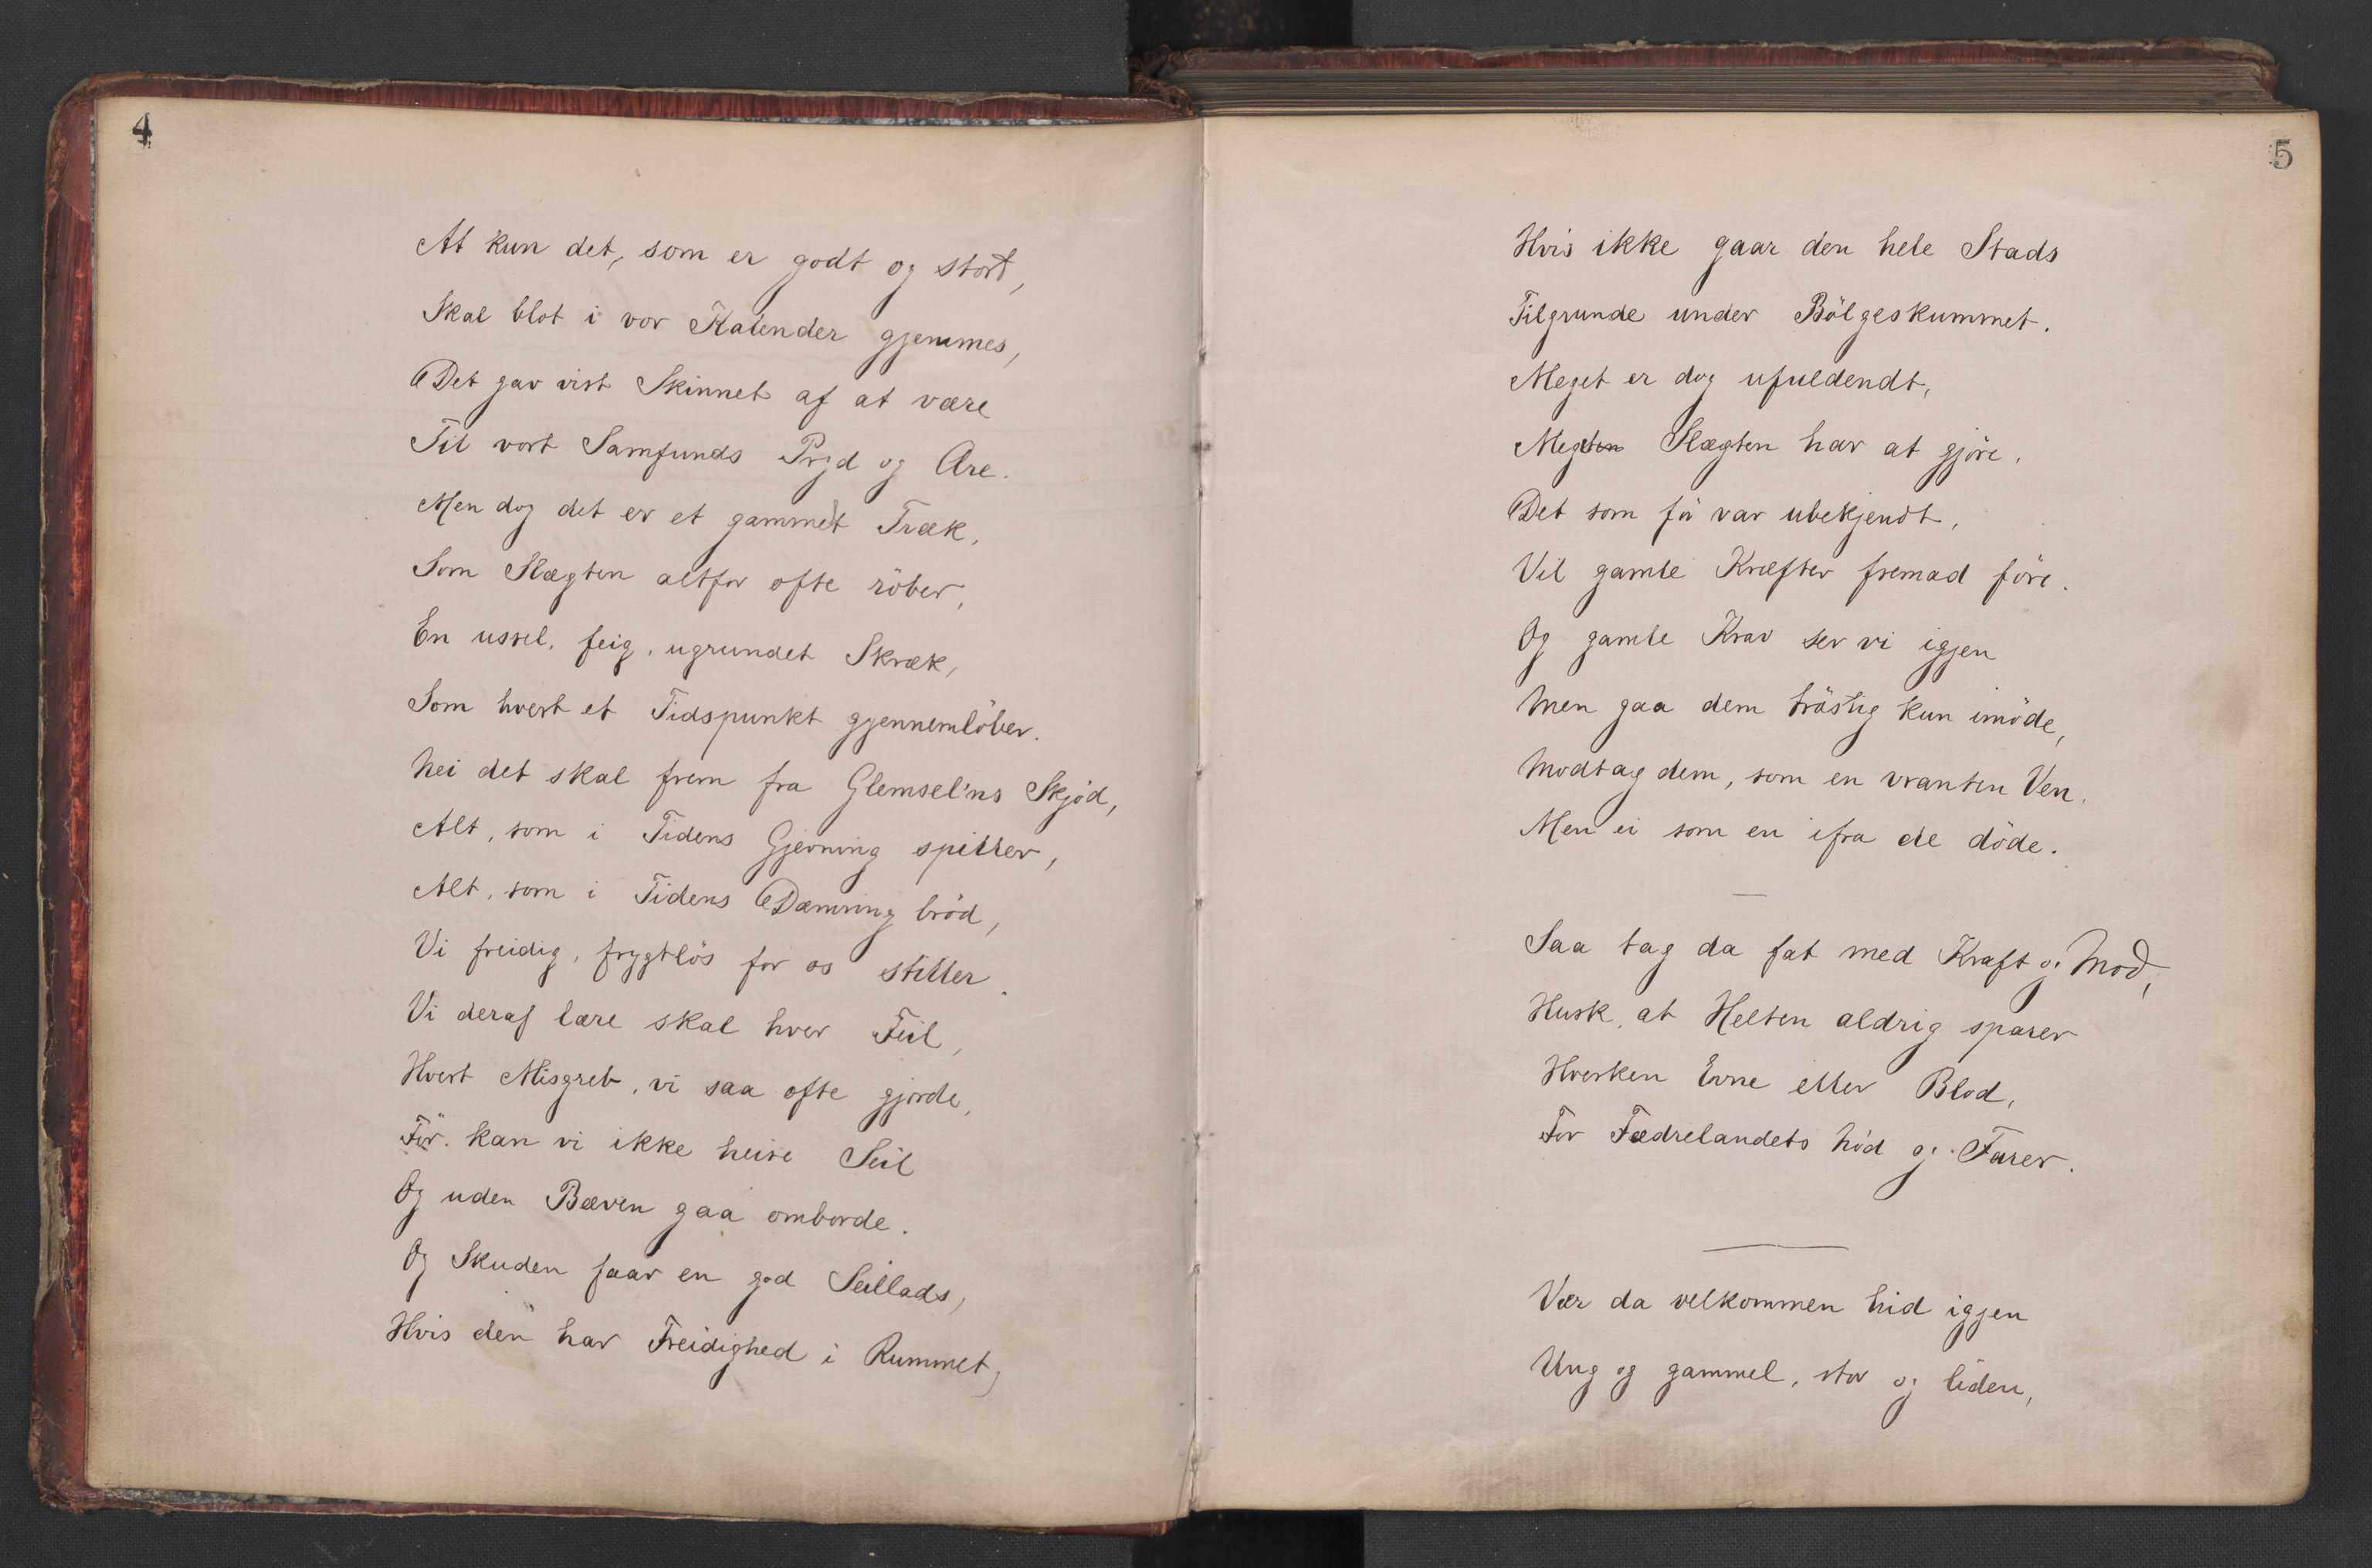 4
At kun det, som er godt og stort,
Skal blot i vor Kalender gjemmes,
Det gav vist Skinnet af at være
Til vort Samfunds Pryd og Ære.
Men dog det er et gammelt Træk,
Som Slægten altfor ofte röber,
En ussel, feig, ugrundet Skræk,
Som hvert et Tidspunkt gjennemlöber.
Nei det skal frem fra Glemsel'ns Skjöd,
Alt, som i Tidens Gjerning spiller,
Alt, som i Tidens Dæmring bröd,
Vi freidig, frygtlös for os stiller.
Vi deraf lære skal hver Feil,
Hvert Misgreb, vi saa ofte gjorde,
För kan vi ikke heise Seil
Og uden Bæven gaa omborde.
Og Skuden faar en god Seillads,
Hvis den har Freidighed i Rummet,
5
Hvis ikke gaar den hele Stads
Tilgrunde under Bölgeskummet.
Meget er dog ufuldendt,
Meget Slægten har at gjöre,
Det som för var ubekjendt,
Vil gamle Kræfter fremad före.
Og gamle Krav ser vi igjen
Men gaa dem tröstig kun imöde,
Modtag dem, som en vranten Ven,
Men ei som en ifra de döde.
Saa tag da fat med Kraft og Mod,
Husk, at Helten aldrig sparer
Hverken Evne eller Blod,
For Fædrelandets Nöd og Farer.
Vær da velkommen hid igjen
Ung og gammel, stor og liden,